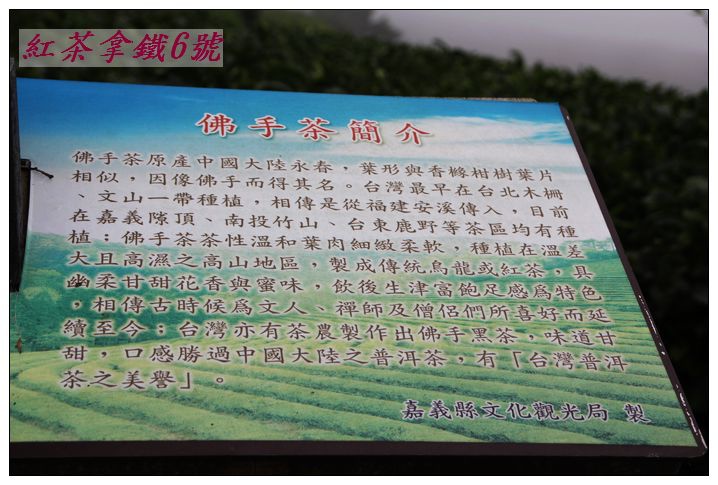 紅茶拿鐵6號
佛手茶簡介
佛手茶原產中國大陸永春，葉形與香櫞柑樹葉片
相似，因像佛手而得其名。台灣最早在台北木柵
、文山一帶種植，相傳是從福建安溪傳入，目前
在嘉義隙頂、南投竹山、台東鹿野等茶區均有種
植：佛手茶茶性溫和葉肉細緻柔軟，種植在溫差
大且高濕之高山地區，製成傳統烏龍或紅茶，具
幽柔甘甜花香與蜜味，飲後生津富飽足感為特色
，相傳古時候為文人、禪師及僧侶們所喜好而延
續至今：台灣亦有茶農製作出佛手黑茶，味道甘
甜，口感勝過中國大陸之普洱茶，有「台灣普洱
茶之美譽」。
嘉義縣文化觀光局 製